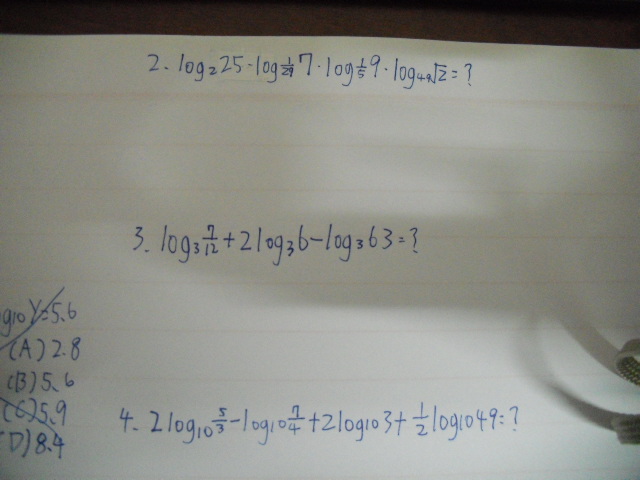 2. log₂25·log_{1/27}7·log_{1/5}9·log₄₉√2=?
3. log₃ 7/12 + 2log₃6 - log₃63 = ?
Y=5.6
(A) 2.8
(B) 5.6
(C) 5.9
(D) 8.4
4. 2log₁₀ 5/3 - log₁₀ 7/4 + 2log₁₀3 + 1/2 log₁₀49 = ?